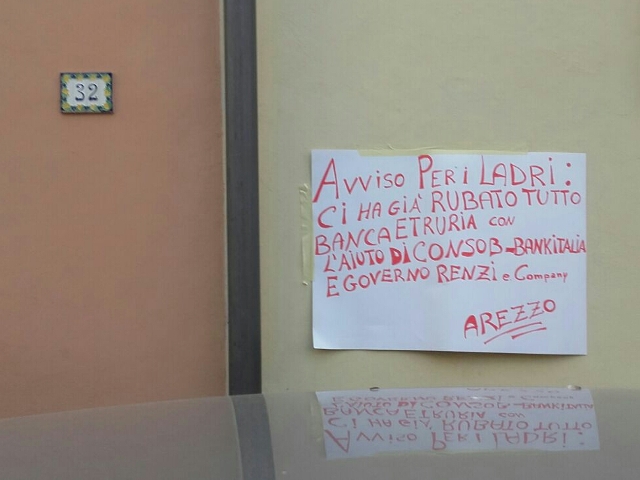 32
AVVISO PER i LADRi:
Ci HA GIÀ RUBATO TUTTO
BANCA ETRURIA CON
L'AIUTO Di CONSOB-BANKITALIA
E GOVERNO RENZi e Company
AREZZO